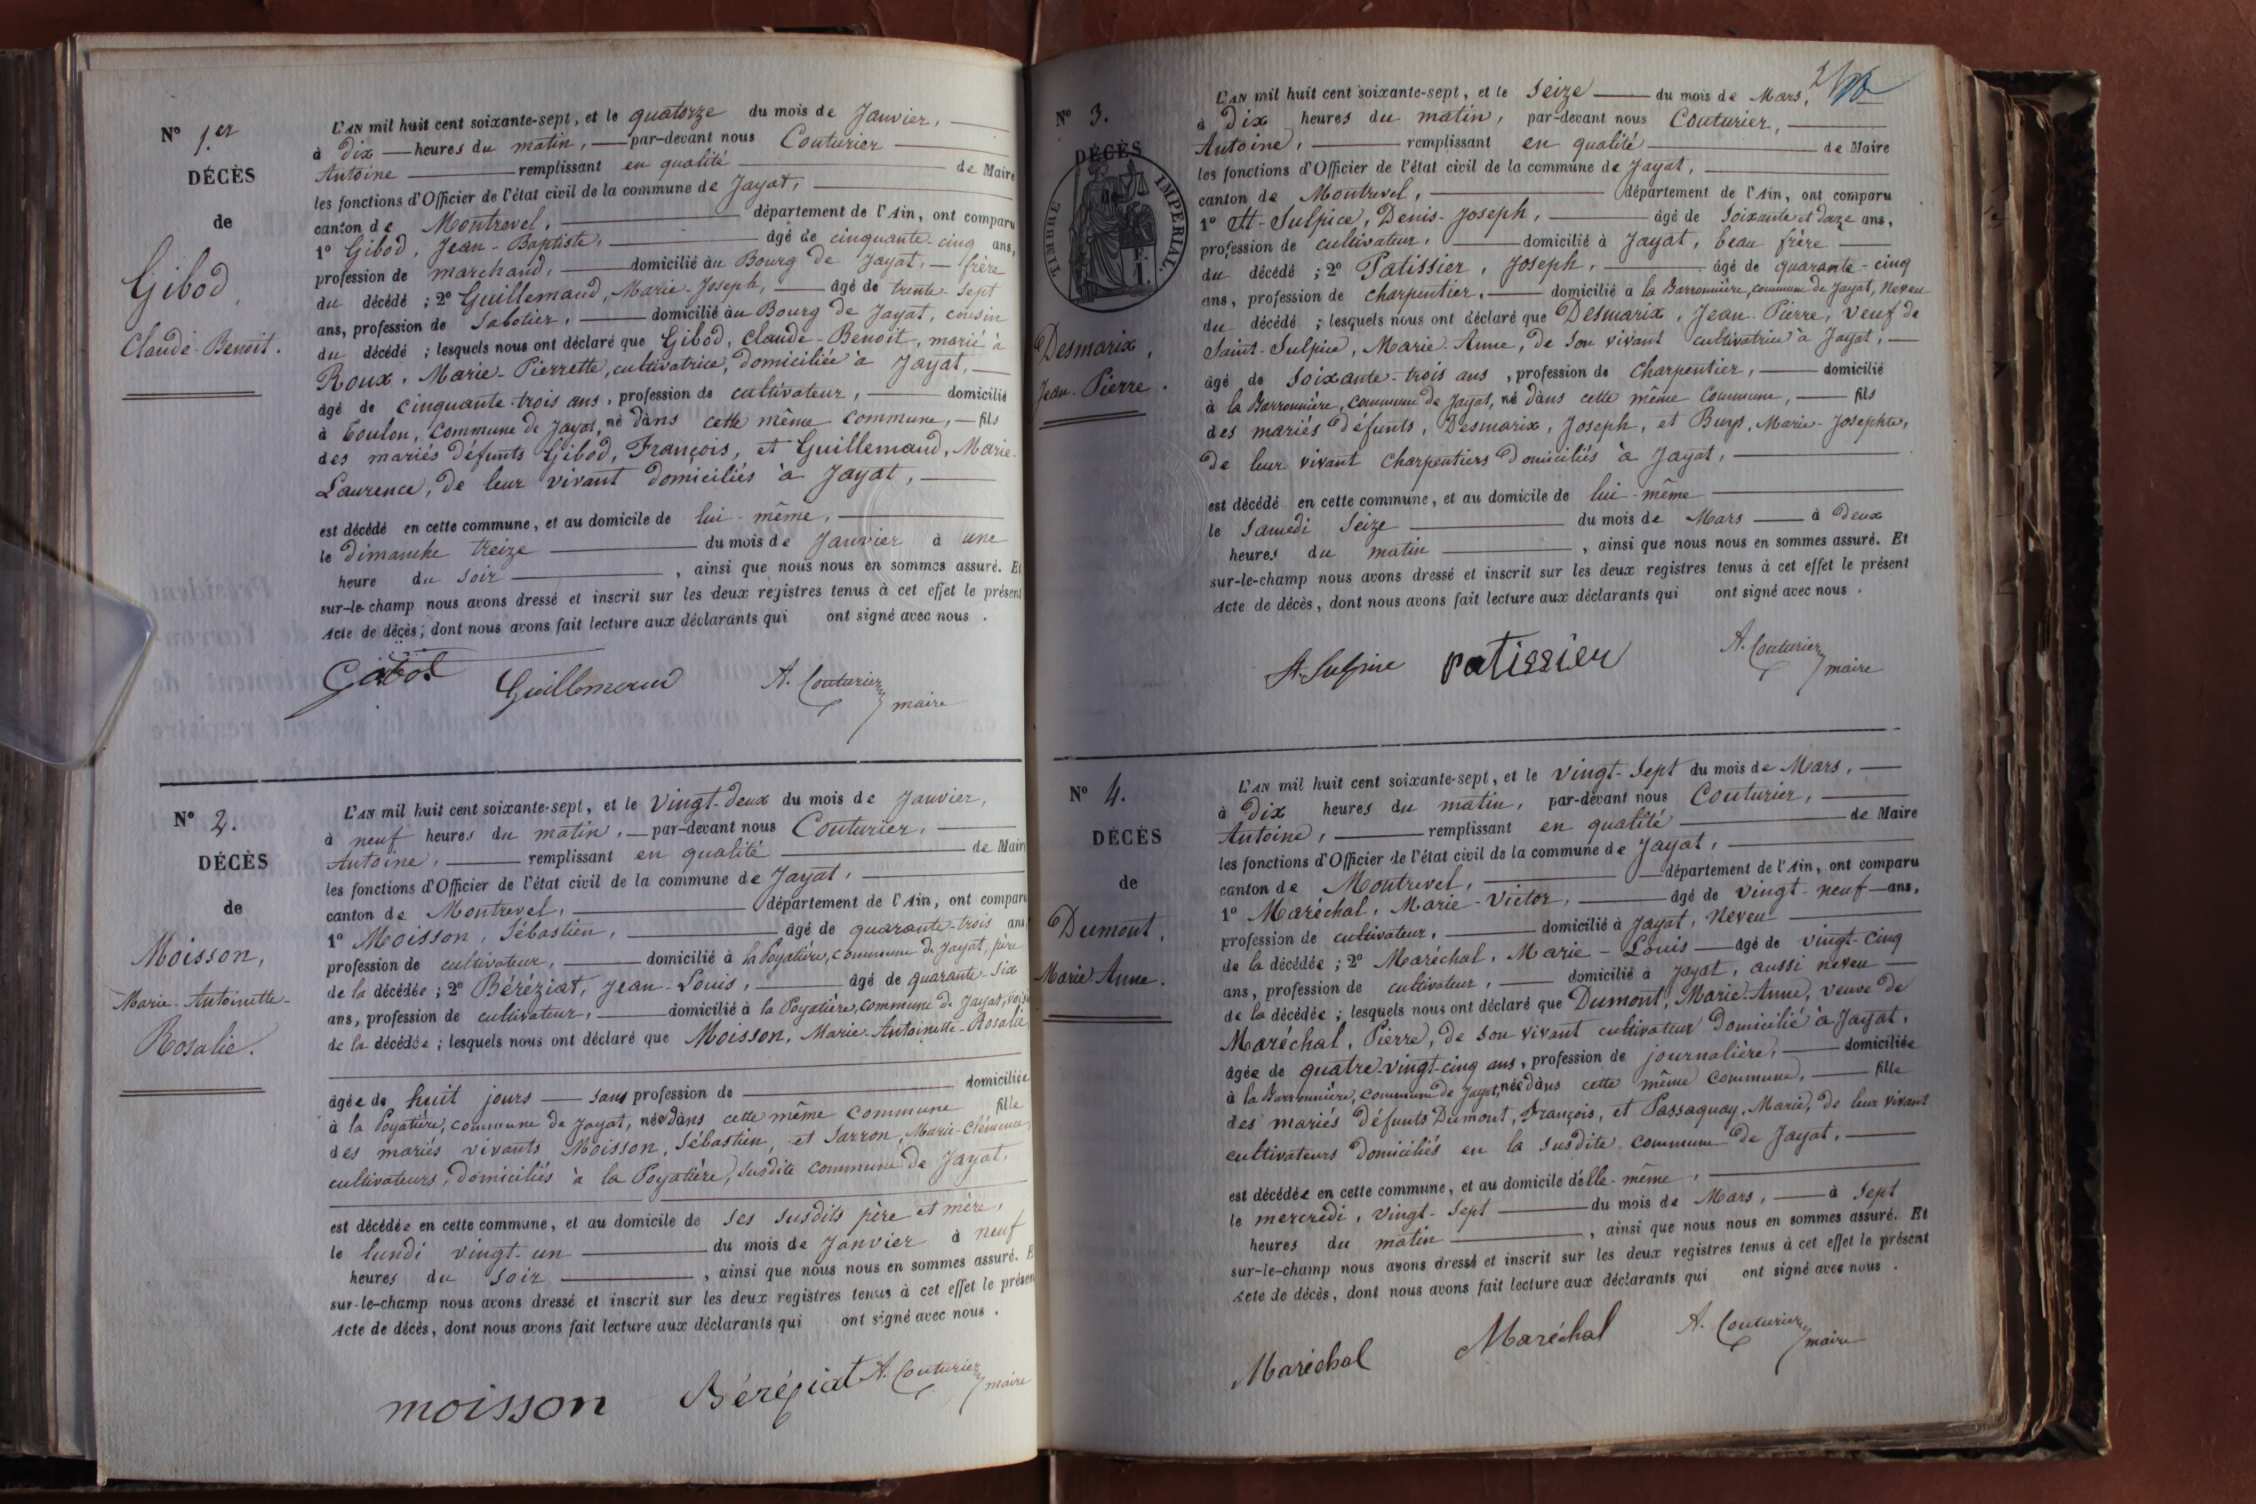 N° 1.er
DÉCÈS
de
Gibod,
Claude-Benoit.
L'AN mil huit cent soixante-sept, et le quatorze du mois de Janvier,
à dix heures du matin, par-devant nous Couturier
Antoine remplissant en qualité de Maire
les fonctions d'Officier de l'état civil de la commune de Jayat,
canton de Montrevel, département de l'Ain, ont comparu
1° Gibod, Jean-Baptiste, âgé de cinquante-cinq ans,
profession de marchand, domicilié au Bourg de Jayat, frère
du décédé ; 2° Guillemaud, Marie-Joseph, âgé de trente-sept
ans, profession de Sabotier, domicilié au Bourg de Jayat, cousin
du décédé ; lesquels nous ont déclaré que Gibod, Claude-Benoit, marié à
Roux, Marie-Pierrette, cultivatrice, domiciliée à Jayat,
âgé de cinquante-trois ans, profession de cultivateur, domicilié
à Toulon, commune de Jayat, né dans cette même commune, fils
des mariés défunts Gibod, François, et Guillemaud, Marie-
Laurence, de leur vivant domiciliés à Jayat,
est décédé en cette commune, et au domicile de lui-même,
le dimanche treize du mois de Janvier à une
heure du soir, ainsi que nous nous en sommes assuré. Et
sur-le-champ nous avons dressé et inscrit sur les deux registres tenus à cet effet le présent
Acte de décès, dont nous avons fait lecture aux déclarants qui ont signé avec nous.
Gibod Guillemaud A. Couturier
maire
N° 2.
DÉCÈS
de
Moisson,
Marie-Antoinette-
Rosalie.
L'AN mil huit cent soixante-sept, et le vingt-deux du mois de Janvier,
à neuf heures du matin, par-devant nous Couturier,
Antoine, remplissant en qualité de Maire
les fonctions d'Officier de l'état civil de la commune de Jayat,
canton de Montrevel, département de l'Ain, ont comparu
1° Moisson, Sébastien, âgé de quarante-trois ans
profession de cultivateur, domicilié à la Poyatière, commune de Jayat, père
de la décédée ; 2° Béréziat, Jean-Louis, âgé de quarante-six
ans, profession de cultivateur, domicilié à la Poyatière, commune de Jayat, voisin
de la décédée ; lesquels nous ont déclaré que Moisson, Marie-Antoinette-Rosalie
âgée de huit jours sans profession de domiciliée
à la Poyatière, commune de Jayat, née dans cette même commune fille
des mariés vivants Moisson, Sébastien, et Sarron, Marie-Clémence,
cultivateurs, domiciliés à la Poyatière, susdite commune de Jayat.
est décédée en cette commune, et au domicile de ses susdits père et mère,
le lundi vingt-un du mois de Janvier à neuf
heures du soir, ainsi que nous nous en sommes assuré. Et
sur-le-champ nous avons dressé et inscrit sur les deux registres tenus à cet effet le présent
Acte de décès, dont nous avons fait lecture aux déclarants qui ont signé avec nous.
moisson Béréziat A. Couturier
maire
N° 3.
DÉCÈS
de
TIMBRE IMPÉRIAL.
Desmarix,
Jean-Pierre.
L'AN mil huit cent soixante-sept, et le seize du mois de Mars,
à dix heures du matin, par-devant nous Couturier,
Antoine, remplissant en qualité de Maire
les fonctions d'Officier de l'état civil de la commune de Jayat,
canton de Montrevel, département de l'Ain, ont comparu
1° St-Sulpice, Denis-Joseph, âgé de soixante et douze ans,
profession de cultivateur, domicilié à Jayat, beau frère
du décédé ; 2° Patissier, Joseph, âgé de quarante-cinq
ans, profession de charpentier, domicilié à la Barronnière, commune de Jayat, Neveu
du décédé ; lesquels nous ont déclaré que Desmarix, Jean-Pierre, veuf de
Saint-Sulpice, Marie-Anne, de son vivant cultivatrice à Jayat,
âgé de soixante-trois ans, profession de charpentier, domicilié
à la Barronnière, commune de Jayat, né dans cette même commune, fils
des mariés défunts, Desmarix, Joseph, et Buys, Marie-Josephte,
de leur vivant charpentiers domiciliés à Jayat,
est décédé en cette commune, et au domicile de lui-même
le samedi seize du mois de Mars à deux
heures du matin, ainsi que nous nous en sommes assuré. Et
sur-le-champ nous avons dressé et inscrit sur les deux registres tenus à cet effet le présent
Acte de décès, dont nous avons fait lecture aux déclarants qui ont signé avec nous.
St-Sulpice Patissier A. Couturier
maire
N° 4.
DÉCÈS
de
Dumont,
Marie Anne.
L'AN mil huit cent soixante-sept, et le vingt-sept du mois de Mars,
à dix heures du matin, par-devant nous Couturier,
Antoine, remplissant en qualité de Maire
les fonctions d'Officier de l'état civil de la commune de Jayat,
canton de Montrevel, département de l'Ain, ont comparu
1° Maréchal, Marie-Victor, âgé de vingt-neuf ans,
profession de cultivateur, domicilié à Jayat, Neveu
de la décédée ; 2° Maréchal, Marie-Louis âgé de vingt-cinq
ans, profession de cultivateur, domicilié à Jayat, aussi neveu
de la décédée ; lesquels nous ont déclaré que Dumont, Marie-Anne, veuve de
Maréchal, Pierre, de son vivant cultivateur domicilié à Jayat,
âgée de quatre-vingt-cinq ans, profession de journalière, domiciliée
à la Barronnière, commune de Jayat, née dans cette même commune, fille
des mariés défunts Dumont, François, et Passaquay, Marie, de leur vivant
cultivateurs domiciliés en la susdite commune de Jayat,
est décédée en cette commune, et au domicile d'elle-même,
le mercredi, vingt-sept du mois de Mars, à sept
heures du matin, ainsi que nous nous en sommes assuré. Et
sur-le-champ nous avons dressé et inscrit sur les deux registres tenus à cet effet le présent
Acte de décès, dont nous avons fait lecture aux déclarants qui ont signé avec nous.
Maréchal Maréchal A. Couturier
maire